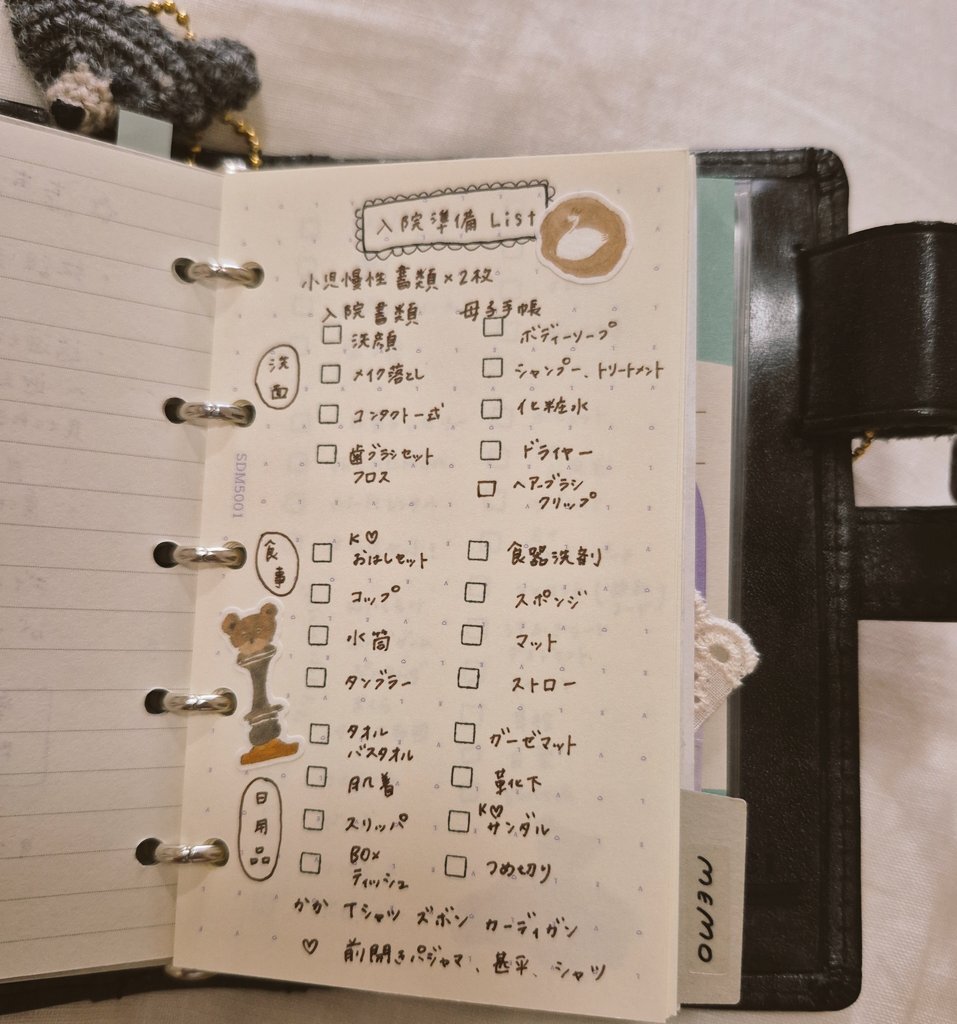 入院準備 List
小児慢性書類×2枚
入院書類 母子手帳
洗面
洗顔
メイク落とし
コンタクト一式
歯ブラシセット
フロス
ボディーソープ
シャンプー、トリートメント
化粧水
ドライヤー
ヘアーブラシ
クリップ
食事
K♡
おはしセット
コップ
水筒
タンブラー
食器洗剤
スポンジ
マット
ストロー
日用品
タオル
バスタオル
肌着
スリッパ
BOX
ティッシュ
ガーゼマット
靴下
K♡
サンダル
つめ切り
かか Tシャツ ズボン カーディガン
♡ 前開きパジャマ、甚平、シャツ
SDM5001
MEMO